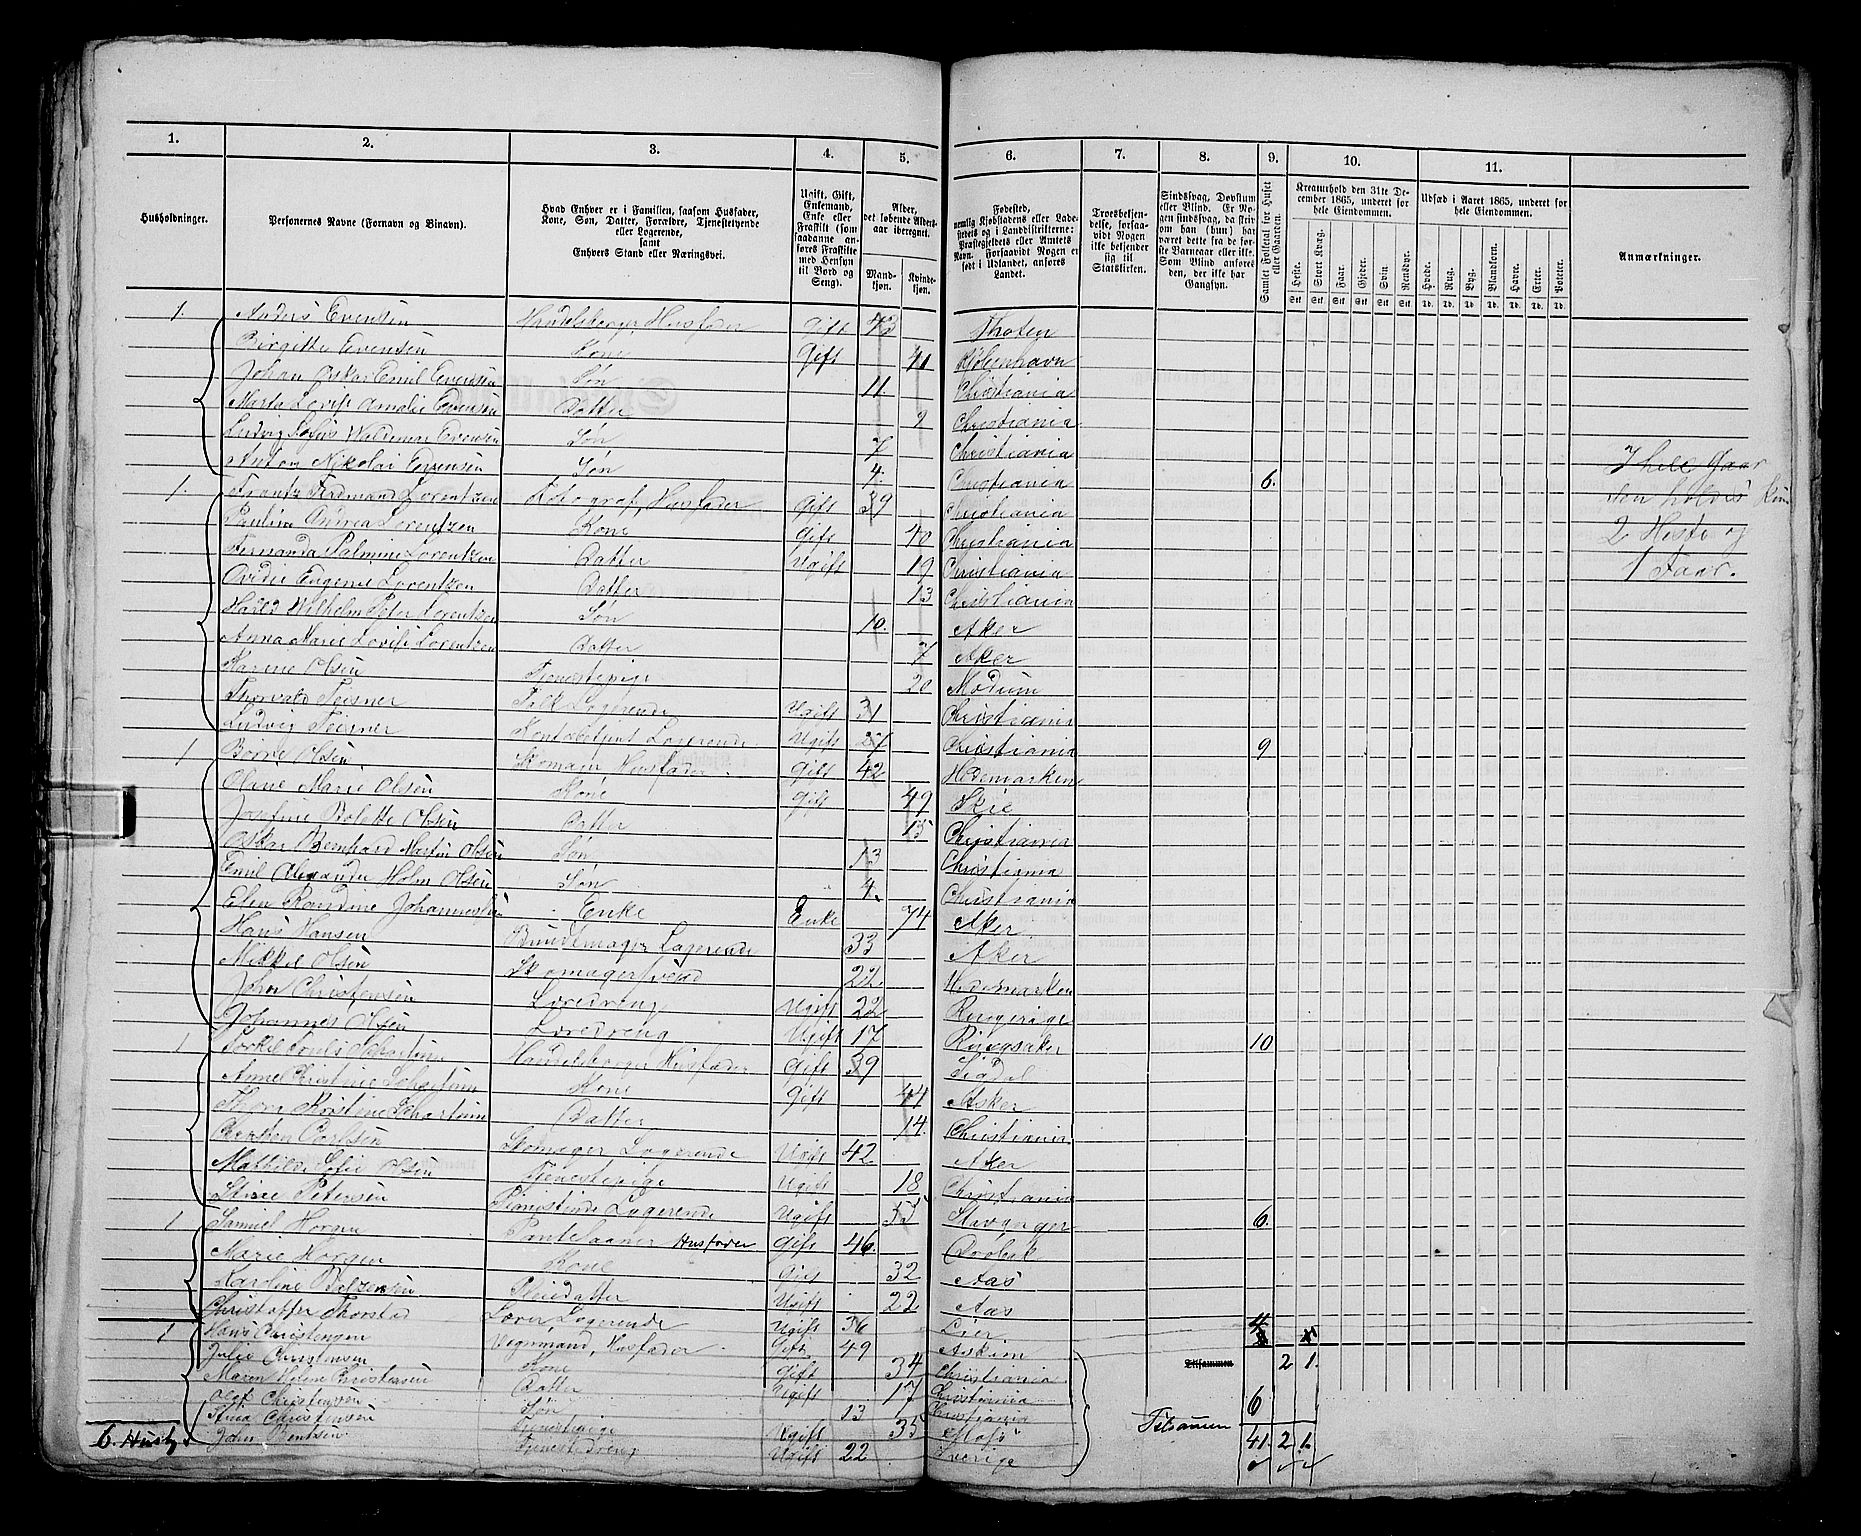 1. 2. 3. 4. 5. 6. 7. 8. 9. 10. 11.
Husholdninger.
Personernes Navne (Fornavn og Binavn).
Hvad Enhver er i Familien, saasom Husfader, Kone, Søn, Datter, Forældre, Tjenestetyende eller Logerende, samt Enhvers Stand eller Næringsvei.
Ugift, Gift, Enkemand, Enke eller Fraskilt (som saadanne anføres Fraskilte med Hensyn til Bord og Seng).
Alder, det løbende Alders-aar iberegnet.
Mand-kjøn. Kvinde-kjøn.
Fødested, nemlig Kjøbstadens eller Ladestedets og i Landdistrikterne: Præstegjeldets eller Amtets Navn. Forsaavidt Nogen er født i Udlandet, anføres Landet.
Troesbekjendelse, forsaavidt Nogen ikke bekjender sig til Statskirken.
Sindssvag, Døvstum eller Blind. Er Nogen sindssvag, da skriv om han (hun) har været dette fra de første Barneaar eller ikke. Som Blind anføres den, der ikke har Gangsyn.
Samlet Folketal for Huset eller Gaarden.
Kreaturhold den 31te December 1865, underet for hele Eiendommen.
Heste. Stort Kvæg. Faar. Gjeder. Svin. Rensdyr.
Stk. Stk. Stk. Stk. Stk. Stk.
Udsæd i Aaret 1865, underet for hele Eiendommen.
Hvede. Rug. Byg. Blandkorn. Havre. Erter. Poteter.
Td. Td. Td. Td. Td. Td. Td.
Anmærkninger.
1. Anders Evensen Handelsborger, Husfader Gift 43 Thoten
Birgitte Evensen Kone Gift 41 Kjøbenhavn
Johan Oskar Emil Evensen Søn 11. Christiania
Marta Lovise Amalie Evensen Datter 9 Christiania
Ludvig Sofus Waldemar Evensen Søn 7 Christiania
Anton Nikolai Evensen Søn 4. Christiania 6.
1. Frantz Ferdinand Lorentzen Fotograf, Husfader Gift 39 Christiania
Paulina Andrea Lorentzen Kone Gift 40 Christiania
Fernanda Palmine Lorentzen Datter Ugift 19 Christiania
Ovidie Eugenie Lorentzen Datter 13 Christiania
Wilhelm Peter Lorentzen Søn 10. Aker
Anna Marie Lovise Lorentzen Datter 7 Aker
Karine Olsen Tjenestepige 20 Modum
Thorvald Logerende Ugift 31 Christiania
Ludvig Logerende Ugift 27 Christiania 9
I hele Gaar
den holdes kun
2 Heste og
1 Faar.
1 Børre Olsen Skomager Husfader Gift 42 Hedemarken
Oline Marie Olsen Kone Gift 49 Skie
Josefine Bolette Olsen Datter 15 Christiania
Oskar Bernhard Martin Olsen Søn 13 Christiania
Emil Alexander Holm Olsen Søn 4. Christiania
Elen Randine Enke Enke 74 Aker
Hans Hansen Bundtmager Logerende 33 Aker
Mikkel Olsen Skomagersvend 22 Hedemarken
John Christensen Loredreng Ugift 22 Ringerige
Johannes Olsen Loredreng Ugift 17 Ringsaker 10
1 Schartum Handelsborger Husfader Gift 39
Anne Christine Schartum Kone Gift 44 Asker
Kristine Schartum Datter 14. Christiania
Carlsen Skomager Logerende Ugift 42 Aker
Mathilde Sofie Olsen Tjenestepige Ugift 18 Christiania
Stine Petersen Logerende Ugift 55 Stavanger 6.
1 Samuel Horgen Pantelaaner Husfader Gift 46. Drøbak
Marie Horgen Kone Gift 32 Aas
Karoline Pleiedatter Ugift 22 Aas
Christoffer Thorstad Lærer Logerende Ugift 36 Lier 4
1 Hans Christensen Vognmand, Husfader Gift 49 Askim
Julie Christensen Kone Gift 34 Christiania
Tilsammen 2 1.
Maren Christensen Datter Ugift 17 Christiania
Olaf Christensen Søn 13 Christiania 6
Stina Christensen Tjenestepige Ugift 35 Moss
John Bentsen Tjenestedreng Ugift 22 Sverige
6. Tilsammen 41. 2 1.